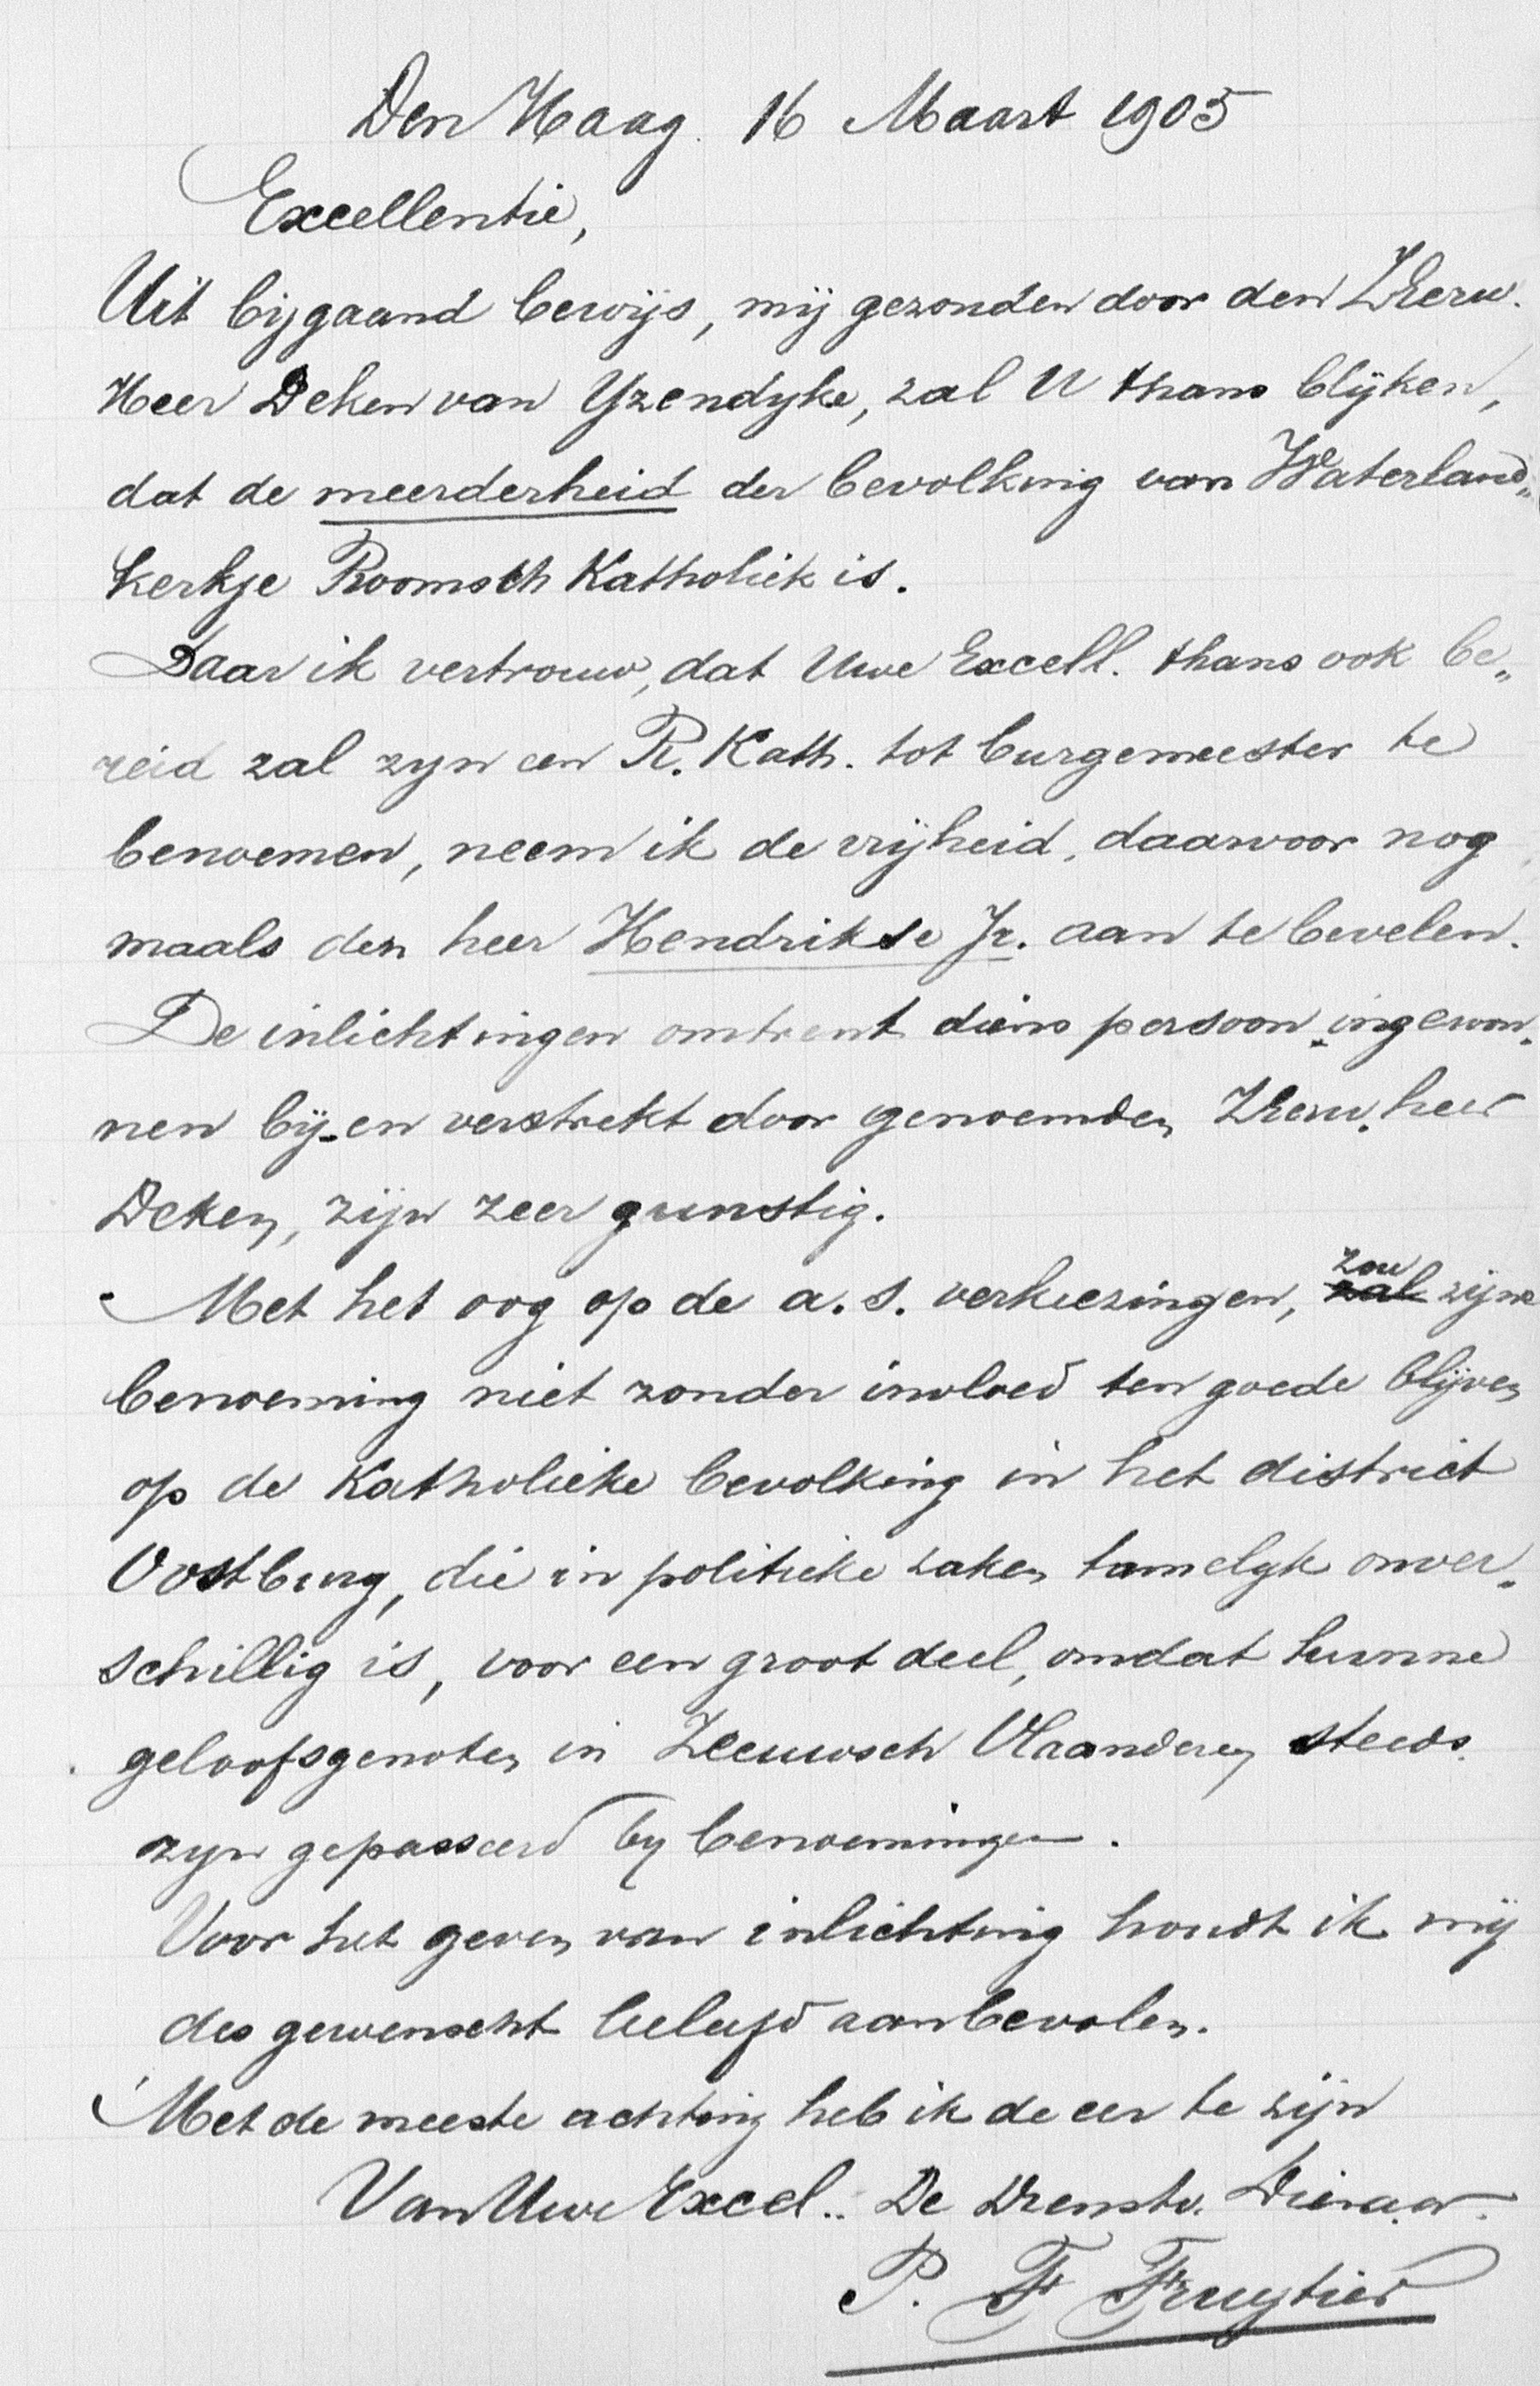 Den Haag. 16 Maart 1905
Excellentie,
Uit bijgaand bewijs, mij gezonden door den ZEerw.
Heer Deken van Yzendyke, zal U thans blijken,
dat de meerderheid der bevolking van Waterland„
kerkje Roomsch Katholiek is.
Daar ik vertrouw, dat Uwe Excell. thans ook be„
reid zal zyn een R. Kath. tot burgemeester te
benoemen, neem ik de vrijheid, daarvoor nog
maals den heer Hendrikse Jr. aan te bevelen.
De inlichtingen omtrent diens persoon ingewon„
nen bij- en verstrekt door genoemden ZEerw. heer
Deken, zijn zeer gunstig.
Met het oog op de a.s. verkiezingen, zou zal zijne
benoeming niet zonder invloed ten goede blijven
op de Katholieke bevolking in het district
Oostburg, die in politieke zaken tamelyk onver„
schillig is, voor een groot deel, omdat hunne
geloofsgenoten in Zeeuwsch Vlaanderen steeds
zyn gepasseerd by benoemingen.
Voor het geven van inlichting houdt ik mij
des gewenscht beleefd aanbevolen.
Met de meeste achting heb ik de eer te zijn
Van Uwe Excel.. De Dienstv. Dienaar.
P. F Fruytier